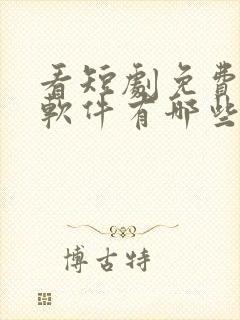 看短劇免費
軟件有哪些
博古特